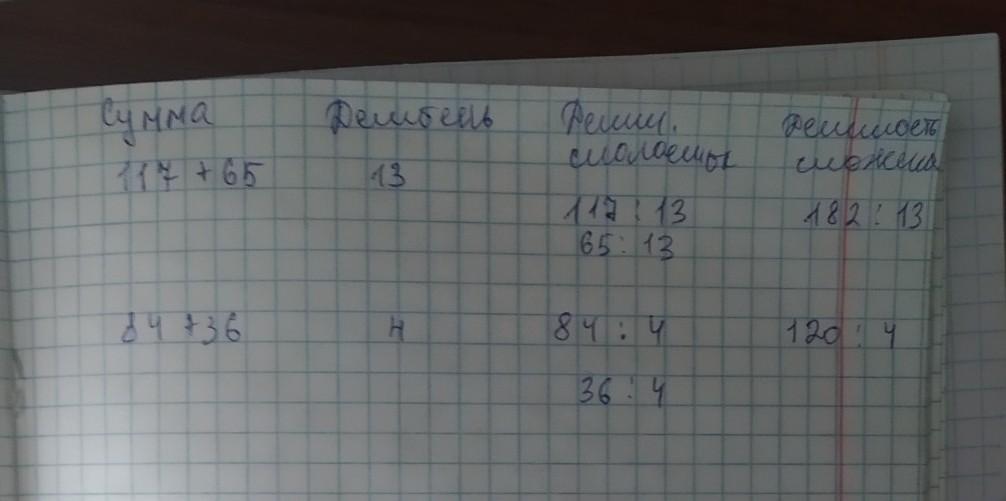 Сумма Делитель Делим. Делимость
слагаемых
117 + 65 13
117 : 13 182 : 13
65 : 13
84 + 36 4 84 : 4 120 : 4
36 : 4